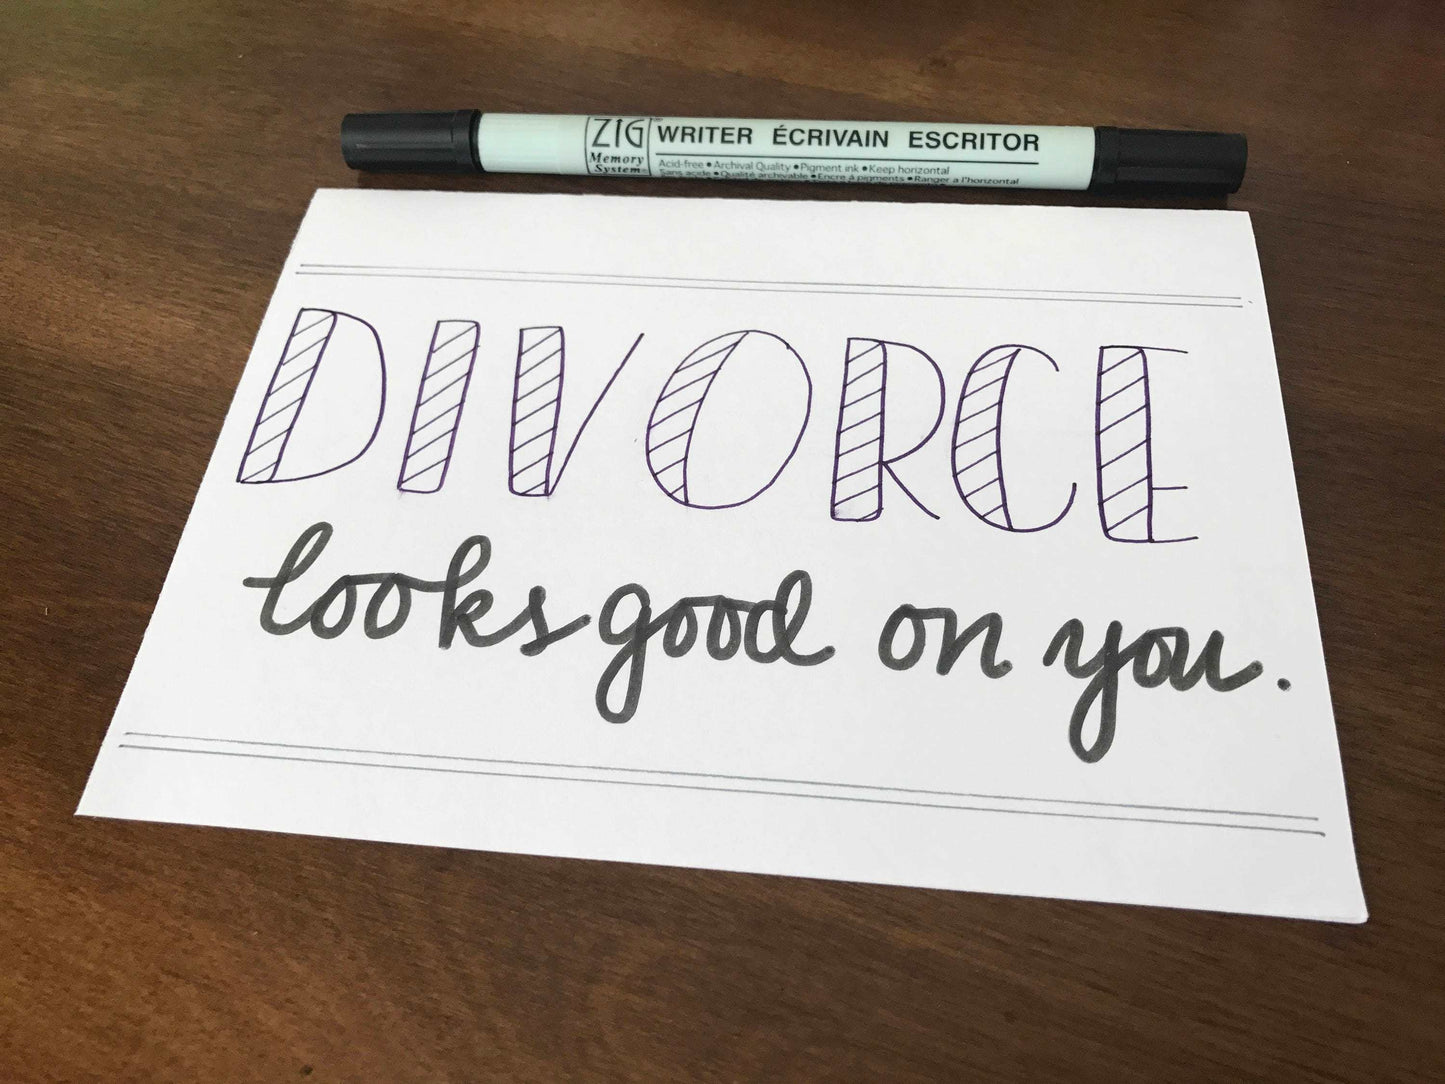 ZIG®
Memory
System
WRITER ÉCRIVAIN ESCRITOR
Acid-free • Archival Quality • Pigment ink • Keep horizontal
Sans acide • Qualité archivable • Encre à pigments • Ranger a l'horizontal
DIVORCE
looks good on you.